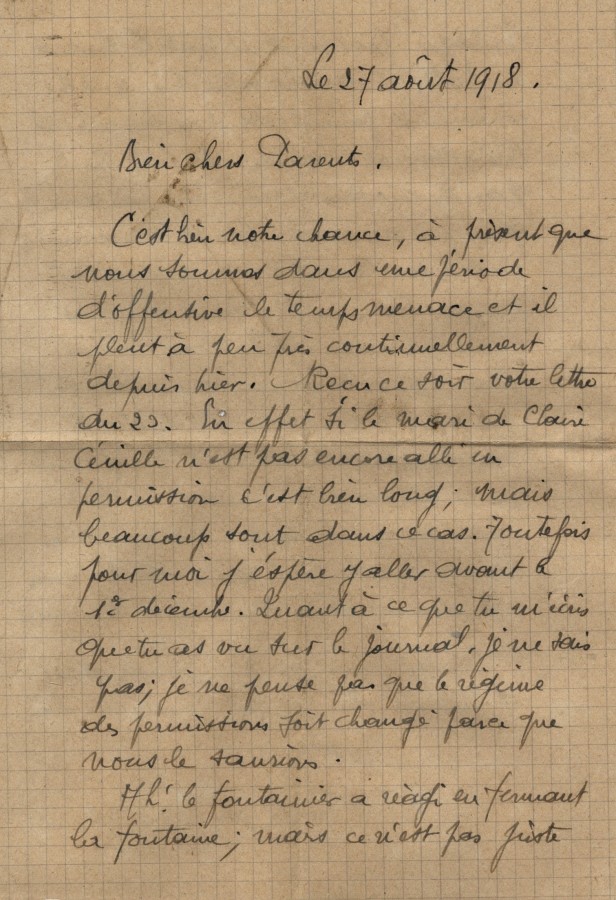 Le 27 août 1918.
Bien chers Parents.
C'est bien notre chance, à présent que
nous sommes dans une période
d'offensive le temps menace et il
pleut à peu près continuellement
depuis hier. Recu ce soir votre lettre
du 23. En effet si le mari de Claire
n'est pas encore allé en
permission c'est bien long; mais
beaucoup sont dans ce cas. Toutefois
pour moi j'éspère y aller avant le
1er décembre. Quant à ce que tu m'écris
que tu as vu sur le journal, je ne sais
pas; je ne pense pas que le régime
des permissions soit changé parce que
nous le saurions.
Ah! le fontainier a réagi en fermant
la fontaine; mais ce n'est pas juste